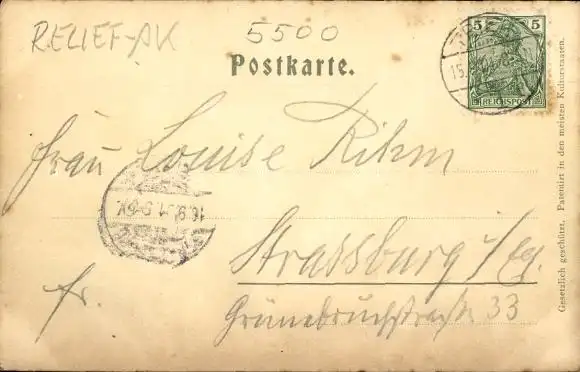 RELIEF-AK
5500
Postkarte.
5 5
REICHSPOST
15.
Frau Louise Rihm
16.9.01. 5-6V.
Strassburg i/Eg.
fr.
Grünebruchstraße 33
Gesetzlich geschützt. Patentirt in den meisten Kulturstaaten.